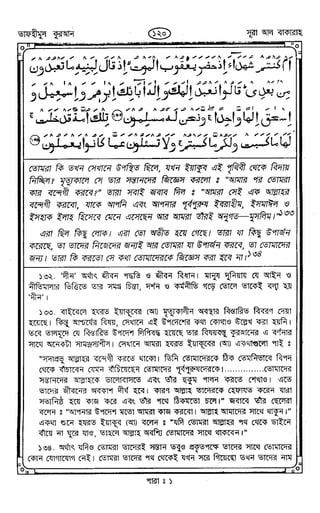 তাফহীমুল কুরআন ১২০ সূরা আল বাকারাহ
اَمْ كُنْتُمْ شُهَدَآءَ اِذْ حَضَرَ يَعْقُوْبَ الْمَوْتُ ۙ اِذْ قَالَ لِبَنِيْهِ مَا تَعْبُدُوْنَ
مِنْۢ بَعْدِىْ ؕ قَالُوْا نَعْبُدُ اِلٰهَكَ وَاِلٰهَ اٰبَآئِكَ اِبْرٰهٖمَ وَاِسْمٰعِيْلَ وَ
اِسْحٰقَ اِلٰهًا وَّاحِدًا ۖ وَّنَحْنُ لَهٗ مُسْلِمُوْنَ ۝ تِلْكَ اُمَّةٌ قَدْ خَلَتْ ۚ
لَهَا مَا كَسَبَتْ وَلَكُمْ مَّا كَسَبْتُمْ ۚ وَلَا تُسْـَٔلُوْنَ عَمَّا كَانُوْا يَعْمَلُوْنَ ۝
তোমরা কি তখন সেখানে উপস্থিত ছিলে, যখন ইয়াকুব এই পৃথিবী থেকে বিদায়
নিচ্ছিল? মৃত্যুকালে সে তার সন্তানদের জিজ্ঞেস করলো : "আমার পর তোমরা
কার বন্দেগী করবে?" তারা সবাই জবাব দিল : "আমরা সেই এক আল্লাহর
বন্দেগী করবো, যাকে আপনি এবং আপনার পূর্বপুরুষ ইবরাহীম, ইসমাঈল ও
ইসহাক ইলাহ হিসেবে মেনে এসেছেন আর আমরা তাঁরই অনুগত—মুসলিম।"১৩৩
এরা ছিল কিছু লোক। এরা তো অতীত হয়ে গেছে। তারা যা কিছু উপার্জন
করেছে, তা তাদের নিজেদের জন্যই আর তোমরা যা উপার্জন করবে, তা তোমাদের
জন্য। তারা কি করতো সে কথা তোমাদেরকে জিজ্ঞেস করা হবে না।১৩৪
১৩২. 'দীন' অর্থাৎ জীবন পদ্ধতি ও জীবন বিধান। মানুষ দুনিয়ায় যে আইন ও
নীতিমালার ভিত্তিতে তার সমগ্র চিন্তা, দর্শন ও কর্মনীতি গড়ে তোলে তাকেই বলা হয়
'দীন'।
১৩৩. বাইবেলে হযরত ইয়াকুবের (আ) মৃত্যুকালীন অবস্থার বিস্তারিত বিবরণ দেয়া
হয়েছে। কিন্তু আশ্চর্যের বিষয়, সেখানে এই উপদেশের কথা কোথাও উল্লেখ করা হয়নি।
তবে তালমূদে যে বিস্তারিত উপদেশ লিপিবদ্ধ হয়েছে তার বিষয়বস্তু কুরআনের এ বর্ণনার
সাথে অনেকটা সামঞ্জস্যশীল। সেখানে আমরা হযরত ইয়াকুবের (আ) একথাগুলো পাই :
"সদাপ্রভু আল্লাহর বন্দেগী করতে থাকো। তিনি তোমাদেরকে ঠিক তেমনিভাবে বিপদ
থেকে বাঁচাবেন যেমন বাঁচিয়েছেন তোমাদের পূর্বপুরুষদেরকে।..............তোমাদের
সন্তানদের আল্লাহকে ভালোবাসতে এবং তাঁর হুকুম পালন করতে শেখাও। এতে
তাদের জীবনের অবকাশ দীর্ঘ হবে। কারণ আল্লাহ তাদেরকে হেফাযত করেন যারা
সত্যনিষ্ঠ হয়ে কাজ করে এবং তাঁর পথে ঠিকমতো চলে।" জবাবে তাঁর ছেলেরা
বলেন : "আপনার উপদেশ মতো আমরা কাজ করবো। আল্লাহ আমাদের সাথে থাকুন।"
একথা শুনে হযরত ইয়াকুব (আ) বলেন : "যদি তোমরা আল্লাহর পথ থেকে ডাইনে
বাঁয়ে না ঘুরে যাও, তাহলে আল্লাহ অবশ্যি তোমাদের সাথে থাকবেন।"
১৩৪. অর্থাৎ যদিও তোমরা তাদেরই সন্তান তবুও প্রকৃতপক্ষে তাদের সাথে তোমাদের
কোন যোগাযোগ নেই। তোমরা তাদের পথ থেকেই যখন সরে গিয়েছো তখন তাদের নাম
পারা : ১